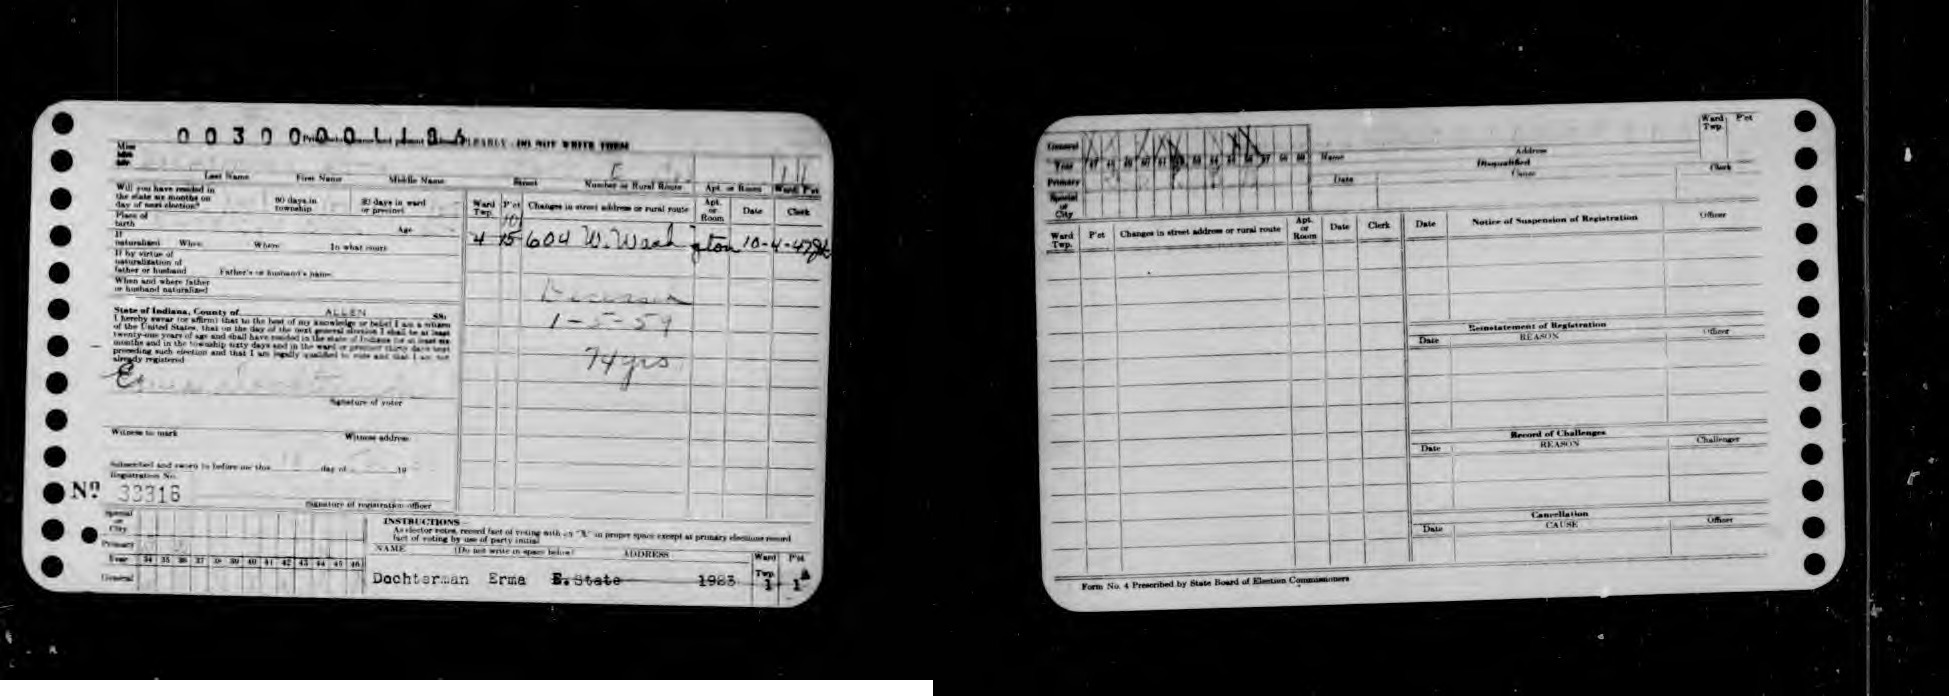 Miss
Last Name First Name Middle Name Street Number or Rural Route Apt. or Room Ward Pct
Will you have resided in the state six months on day of next election? 60 days in township 30 days in ward or precinct
Place of birth Age
If naturalized When Where In what court
If by virtue of naturalization of father or husband Father's or husband's name
When and where father or husband naturalized
State of Indiana, County of ALLEN SS:
I hereby swear (or affirm) that to the best of my knowledge or belief I am a citizen
of the United States, that on the day of the next general election I shall be at least
twenty-one years of age and shall have resided in the state of Indiana for at least six
months and in the township sixty days and in the ward or precinct thirty days next
preceding such election and that I am legally qualified to vote and that I am not
already registered
Signature of voter
Witness to mark Witness address
Subscribed and sworn to before me this day of 19
Registration No.
Nº 33316
Signature of registration officer
Ward Twp. P'ct Changes in street address or rural route Apt. or Room Date Clerk
10
4 15 604 W. Washington 10-4-47
Deceased
1-5-59
74 yrs
Special or City
Primary
Year 34 35 36 37 38 39 40 41 42 43 44 45 46
General
INSTRUCTIONS
As elector votes, record fact of voting with an "X" in proper space except at primary elections record
fact of voting by use of party initial
NAME (Do not write in space below) ADDRESS Ward Twp. P'ct
Dochterman Erma E. State 1983 1 1
General
Year
Primary
Special or City
Name Address Ward Twp. P'ct
Disqualified
Date Cause Clerk
Ward Twp. P'ct Changes in street address or rural route Apt. or Room Date Clerk
Date Notice of Suspension of Registration Officer
Reinstatement of Registration
Date REASON Officer
Record of Challenges
Date REASON Challenger
Cancellation
Date CAUSE Officer
Form No. 4 Prescribed by State Board of Election Commissioners